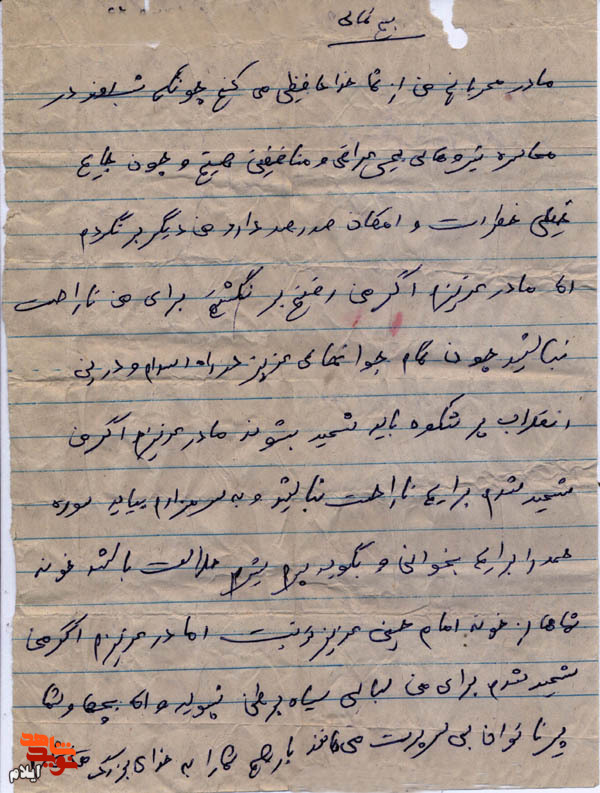 بسمه تعالی
مادر مهربانم من از شما خداحافظی می کنم چونکه شب در
محاصره نیروهای بعثی عراقی و منافقین هستیم و چون جایم
خیلی خطر است و امکان صد درصد دارد من دیگر برنگردم
اما مادر عزیزم اگر من رفتم بر نگشتم برای من ناراحت
نباشید چون تمام جوانهای عزیز در راه اسلام و در این
انقلاب پر شکوه باید شهید بشوند مادر عزیزم اگر من
شهید شدم برایم ناراحت نباشید و به سر مزارم بیاید سوره
حمد را برایم بخوانی و بگوید پسرم شیرم حلالت باشد خونه
شماها از خونه امام حسین عزیزتر نیست اما مادر عزیزم اگر من
شهید شدم برای من لباس سیاه بر تن نپوشید و اما بچه ها و شما
پیر ناتوان بی سرپرست می مانند باز هم شما را به خدای بزرگ
شاهد
نوید
ایلام